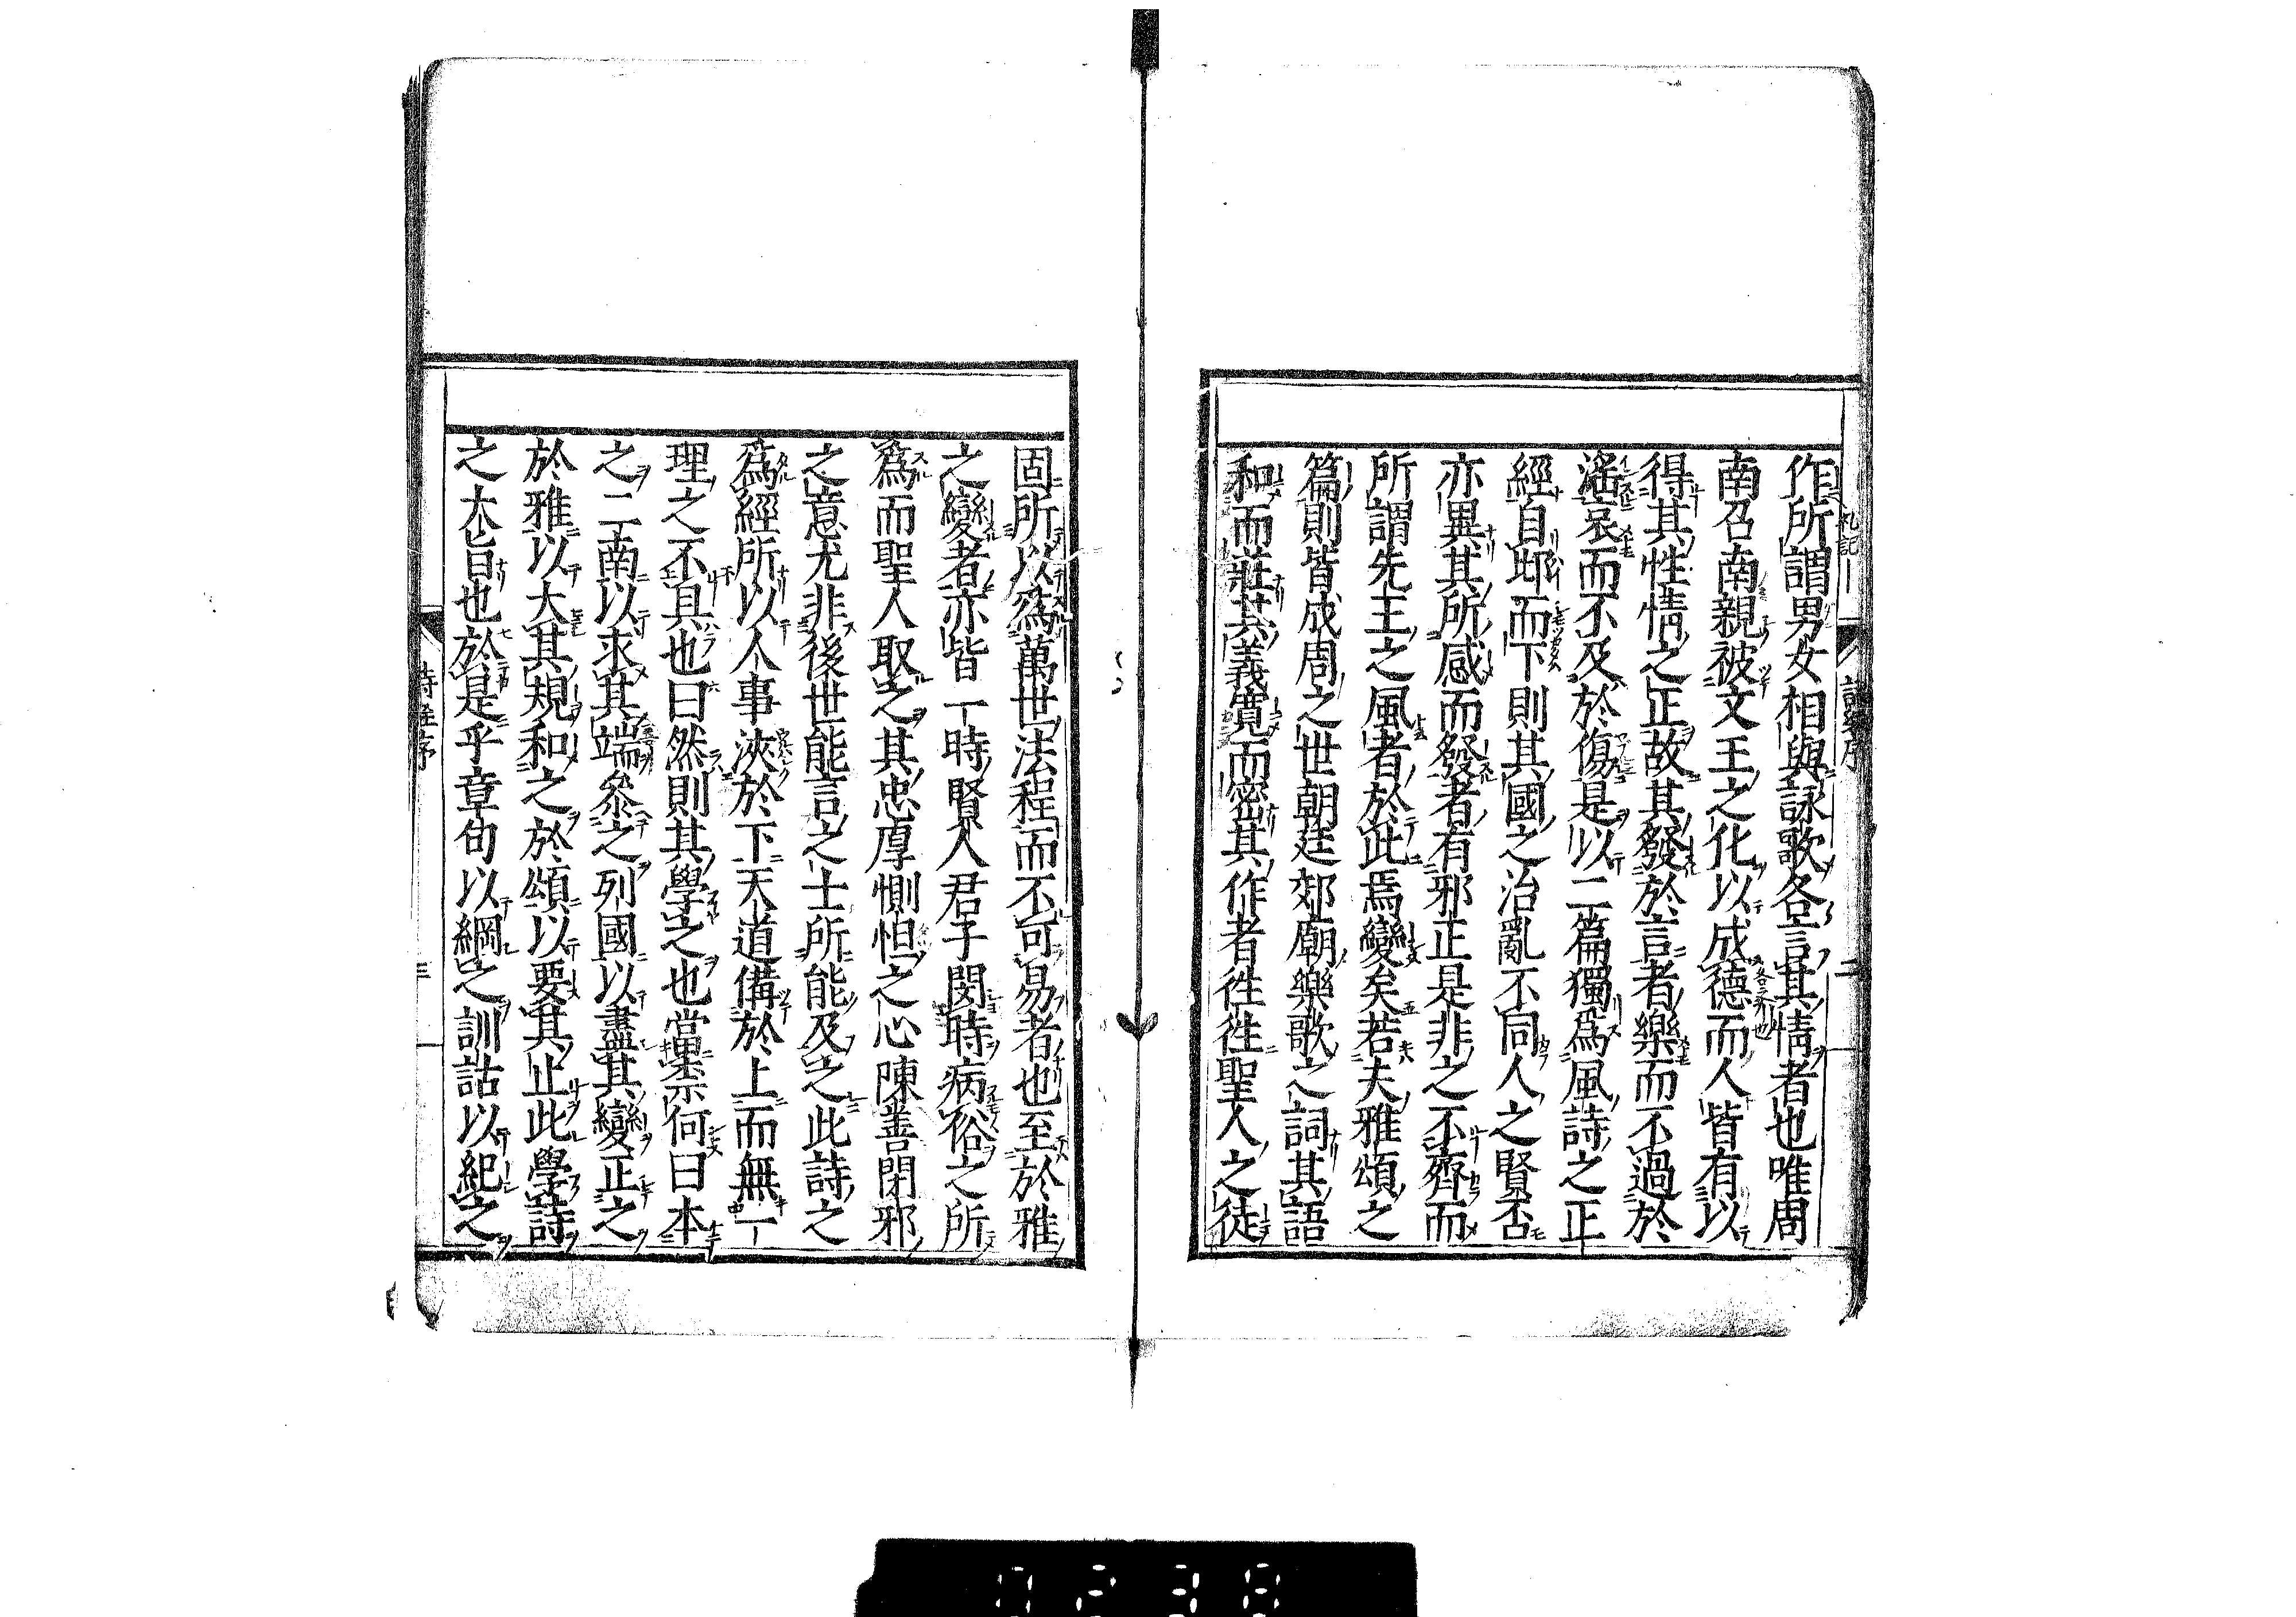 作所謂男女相與詠歌各言其情者也唯周
南召南親被文王之化以成德而人皆有以
得其性情之正故其發於言者樂而不過於
滛哀而不及於傷是以二篇獨爲風詩之正
經自邶而下則其國之治亂不同人之賢否
亦異其所感而發者有邪正是非之不齊而
所謂先王之風者於此焉變矣若夫雅頌之
篇則皆成周之世朝廷郊廟樂歌之詞其語
和而莊其義寬而密其作者徃徃聖人之徒
固所以爲萬世法程而不可易者也至於雅
之變者亦皆一時賢人君子閔時病俗之所
爲而聖人取之其忠厚惻怛之心陳善閉邪
之意尤非後世能言之士所能及之此詩之
爲經所以人事浹於下天道備於上而無一
理之不具也曰然則其學之也當柰何曰本
之二南以求其端叅之列國以盡其變正之
於雅以大其規和之於頌以要其止此學詩
之大旨也於是乎章句以綱之訓詁以紀之
詩經序
三